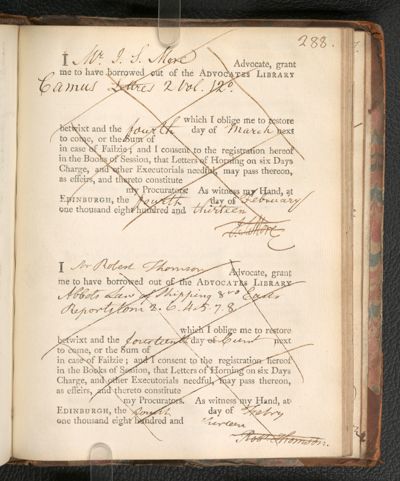 288.
I Mr. J. S. More Advocate, grant
me to have borrowed out of the ADVOCATES LIBRARY
Camus Lettres 2 Vol. 12o.
which I oblige me to restore
betwixt and the fourth day of March next
to come, or the Sum of
in case of Failzie; and I consent to the registration hereof
in the Books of Session, that Letters of Horning on six Days
Charge, and other Executorials needful, may pass thereon,
as effeirs, and thereto constitute
my Procurators. As witness my Hand, at
EDINBURGH, the fourth day of February
one thousand eight hundred and thirteen
J. S. More
I Mr Robert Thomson Advocate, grant
me to have borrowed out of the ADVOCATES LIBRARY
Abbots Law of Shipping 8vo
Reports tom 2. 6. 4. 5. 7. 8
which I oblige me to restore
betwixt and the fourteenth day of next
to come, or the Sum of
in case of Failzie; and I consent to the registration hereof
in the Books of Session, that Letters of Horning on six Days
Charge, and other Executorials needful, may pass thereon,
as effeirs, and thereto constitute
my Procurators. As witness my Hand, at
EDINBURGH, the fourth day of
one thousand eight hundred and thirteen
Robt Thomson.